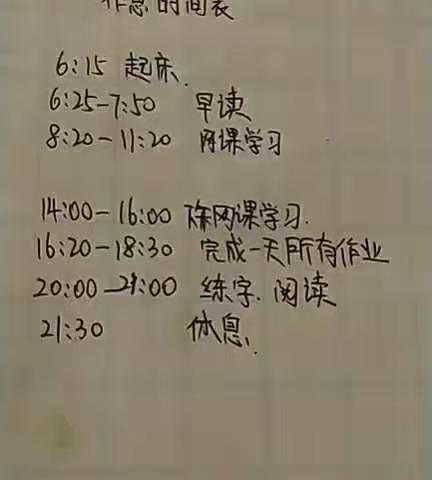 作息时间表
6:15 起床.
6:25-7:50 早读
8:20-11:20 网课学习
14:00-16:00 网课学习.
16:20-18:30 完成一天所有作业
20:00-21:00 练字、阅读
21:30 休息.